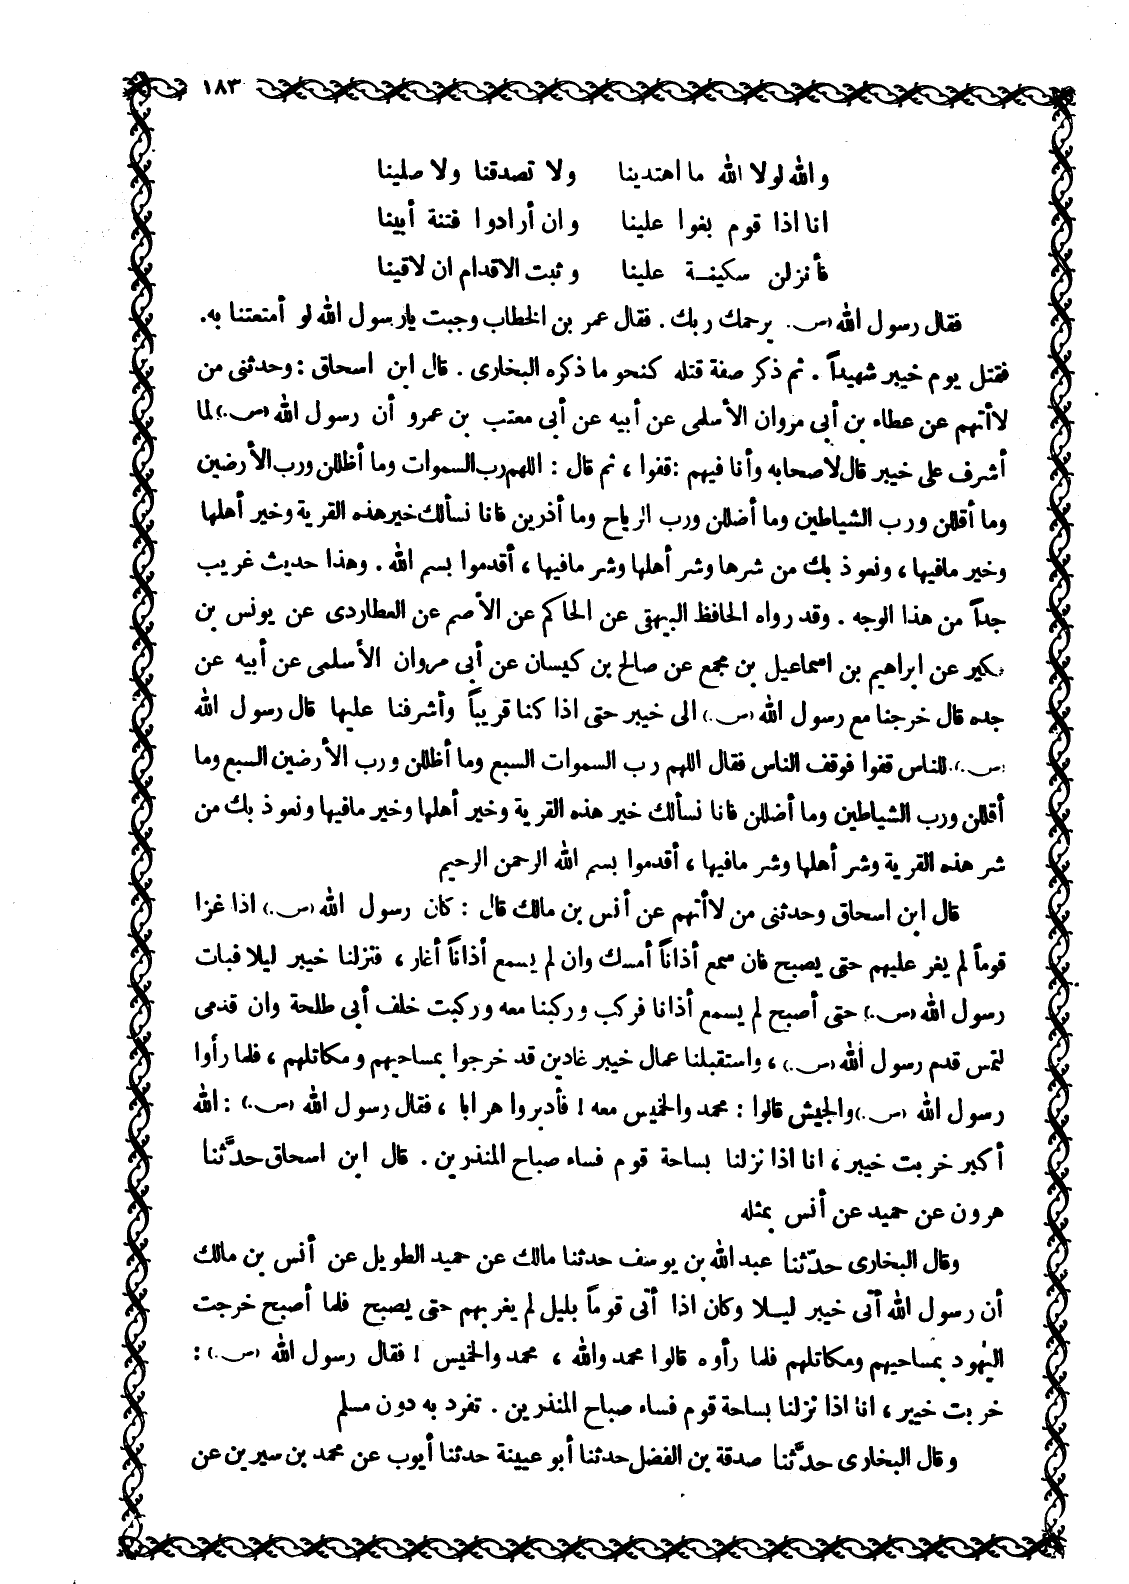 ١٨٣
والله لولا الله ما اهتدينا ولا تصدقنا ولا صلينا
انا اذا قوم بغوا علينا وان أرادوا فتنة أبينا
فأنزلن سكينة علينا وثبت الاقدام ان لاقينا
فقال رسول الله (ص.) يرحمك ربك . فقال عمر بن الخطاب وجبت يارسول الله لو أمتعتنا به.
فقتل يوم خيبر شهيداً . ثم ذكر صفة قتله كنحو ما ذكره البخارى . قال ابن اسحاق : وحدثنى من
لاأتهم عن عطاء بن أبى مروان الأسلمى عن أبيه عن أبى معتب بن عمرو أن رسول الله (ص.) لما
أشرف على خيبر قال لاصحابه وأنا فيهم : قفوا ، ثم قال : اللهم رب السموات وما أظللن ورب الأرضين
وما أقللن ورب الشياطين وما أضللن ورب الرياح وما أذرين فانا نسألك خير هذه القرية وخير أهلها
وخير مافيها ، ونعوذ بك من شرها وشر أهلها وشر مافيها ، أقدموا بسم الله . وهذا حديث غريب
جداً من هذا الوجه . وقد رواه الحافظ البيهقى عن الحاكم عن الأصم عن العطاردى عن يونس بن
بكير عن ابراهيم بن اسماعيل بن مجمع عن صالح بن كيسان عن أبى مروان الأسلمى عن أبيه عن
جده قال خرجنا مع رسول الله (ص.) الى خيبر حتى اذا كنا قريباً وأشرفنا عليها قال رسول الله
(ص.) للناس قفوا فوقف الناس فقال اللهم رب السموات السبع وما أظللن ورب الأرضين السبع وما
أقللن ورب الشياطين وما أضللن فانا نسألك خير هذه القرية وخير أهلها وخير مافيها ونعوذ بك من
شر هذه القرية وشر أهلها وشر مافيها ، أقدموا بسم الله الرحمن الرحيم
قال ابن اسحاق وحدثنى من لاأتهم عن أنس بن مالك قال : كان رسول الله (ص.) اذا غزا
قوماً لم يغر عليهم حتى يصبح فان سمع أذاناً أمسك وان لم يسمع أذاناً أغار ، فنزلنا خيبر ليلا فبات
رسول الله (ص.) حتى أصبح لم يسمع أذانا فركب وركبنا معه وركبت خلف أبى طلحة وان قدمى
لتمس قدم رسول الله (ص.) ، واستقبلنا عمال خيبر غادين قد خرجوا بمساحيهم ومكاتلهم ، فلما رأوا
رسول الله (ص.) والجيش قالوا : محمد والخميس معه ! فأدبروا هرابا ، فقال رسول الله (ص.) : الله
أكبر خربت خيبر ، انا اذا نزلنا بساحة قوم فساء صباح المنذرين . قال ابن اسحاق حدَّثنا
هرون عن حميد عن أنس بمثله
وقال البخارى حدّثنا عبد الله بن يوسف حدثنا مالك عن حميد الطويل عن أنس بن مالك
أن رسول الله أتى خيبر ليلا وكان اذا أتى قوماً بليل لم يغر بهم حتى يصبح فلما أصبح خرجت
اليهود بمساحيهم ومكاتلهم فلما رأوه قالوا محمد والله ، محمد والخميس ! فقال رسول الله (ص.) :
خربت خيبر ، انا اذا نزلنا بساحة قوم فساء صباح المنذرين . تفرد به دون مسلم
وقال البخارى حدَّثنا صدقة بن الفضل حدثنا أبو عيينة حدثنا أيوب عن محمد بن سيرين عن